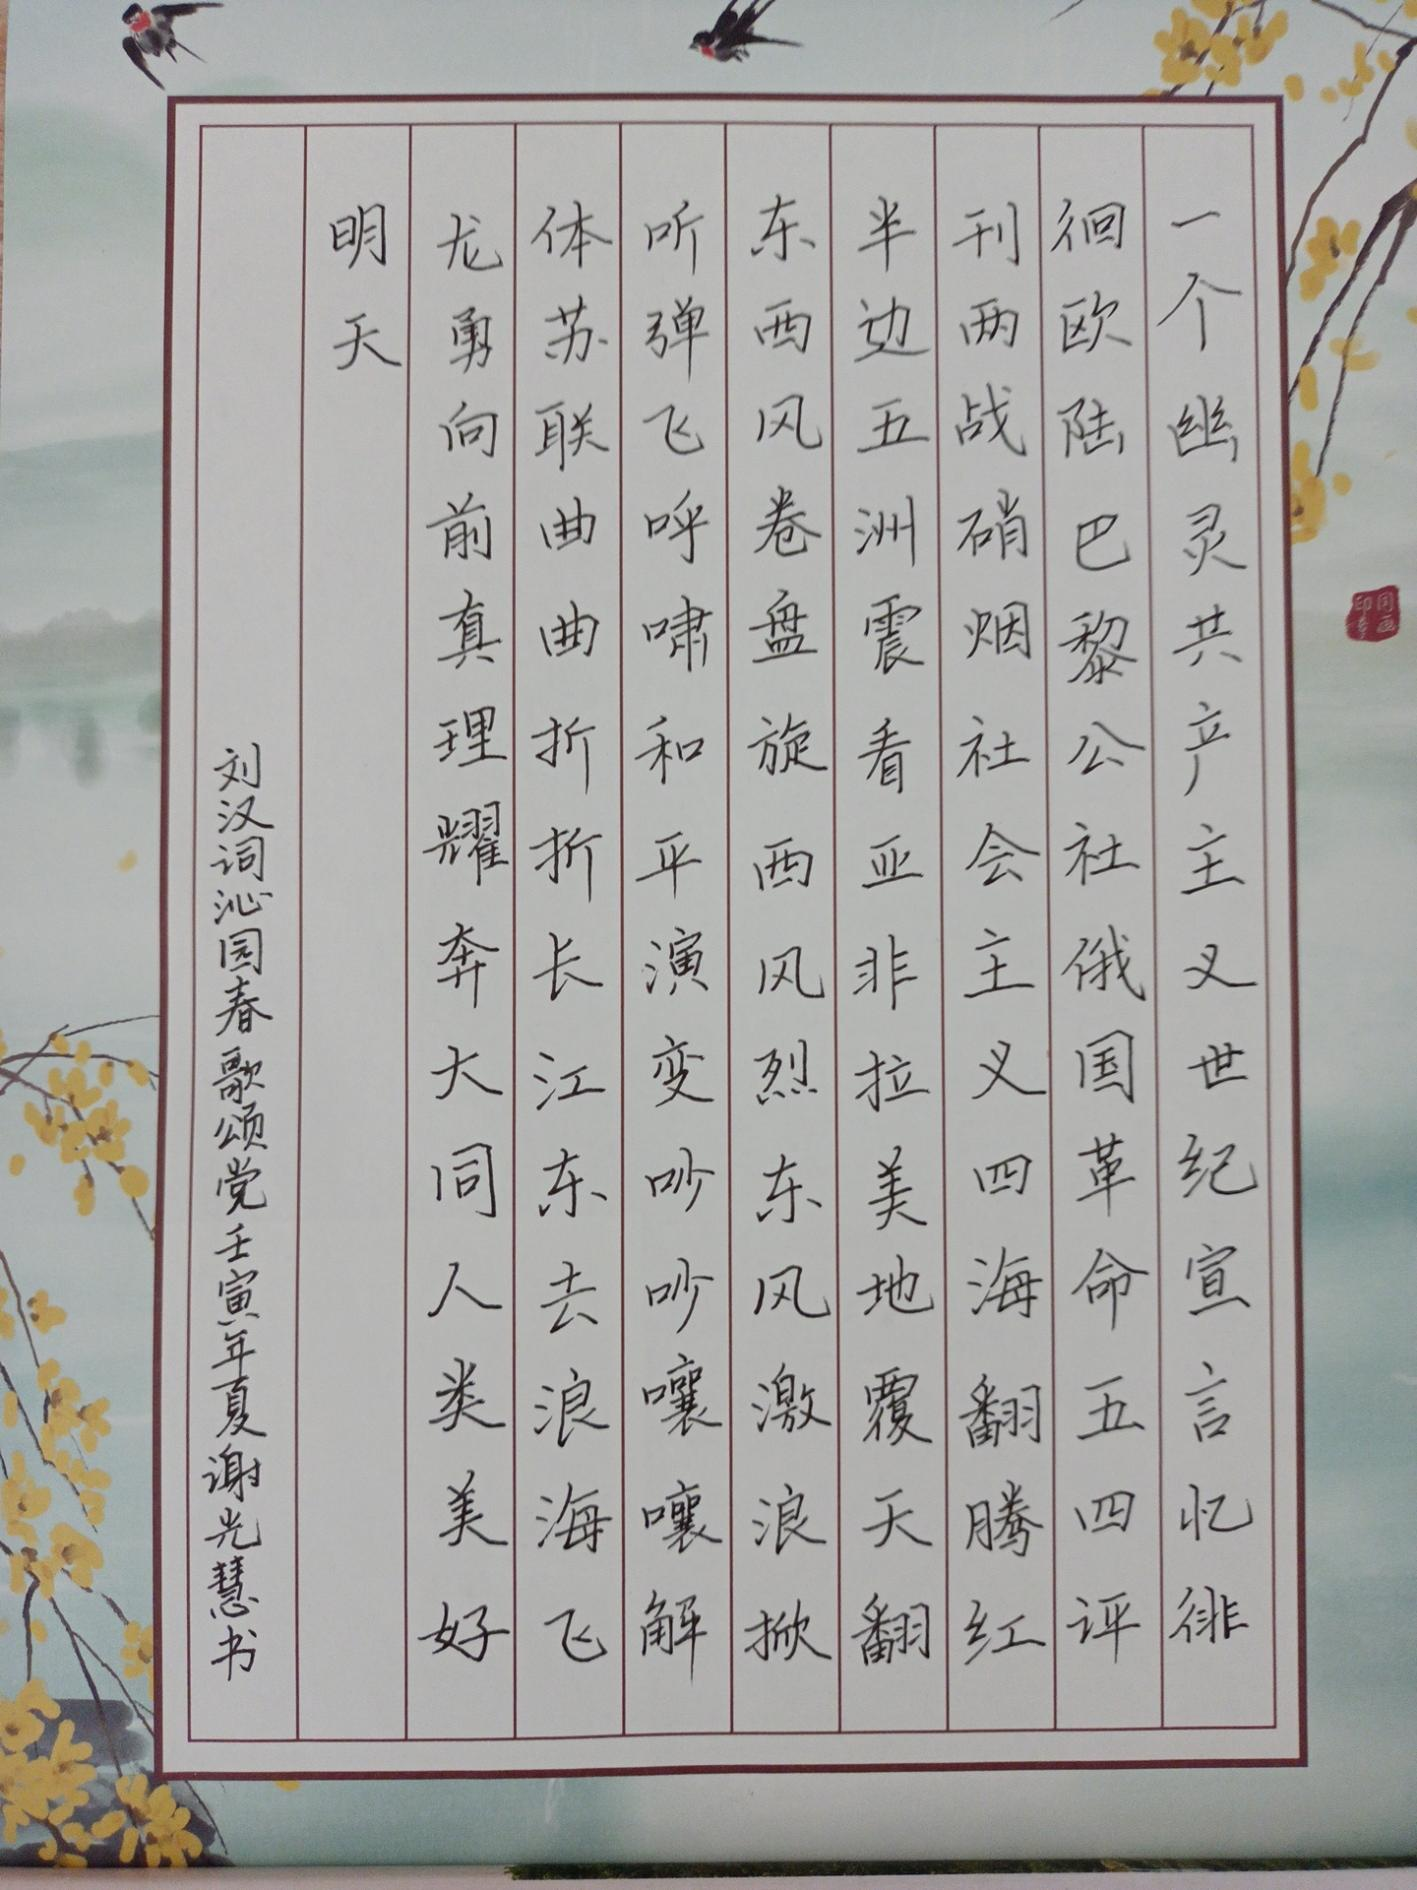 一个幽灵共产主义世纪宣言忆徘
徊欧陆巴黎公社俄国革命五四评
刊两战硝烟社会主义四海翻腾红
半边五洲震看亚非拉美地覆天翻
东西风卷盘旋西风烈东风激浪掀
听弹飞呼啸和平演变吵吵嚷嚷解
体苏联曲曲折折长江东去浪海飞
龙勇向前真理耀奔大同人类美好
明天
刘汉词沁园春歌颂党壬寅年夏谢光慧书